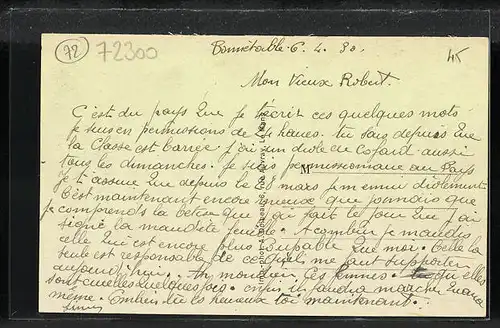 72 72300 Bonnétable 6. 4. 30. 45
Mon Vieux Robert.
C'est du pays que je t'écris ces quelques mots
je suis en permissions de 24 heures. tu sais depuis que
la Classe est barrée j'ai un drôle de cafard aussi
tous les dimanches je suis permissionnaire au Pays
je t'assure que depuis le 28 mars je m'ennui drôlement
C'est maintenant encore mieux que jamais que
je comprends la bêtise que j'ai fait le jour que j'ai
signé la maudite feuille. A combien je maudis
celle qui est encore plus coupable que moi. celle la
seule est responsable de ce qu'il me faut supporter
aujourd'hui. Ah mon vieux ces femmes. qu'elles
sont cruelles quelques fois. enfin il faudra marcher quand
même. Combien tu es heureux toi maintenant.
M